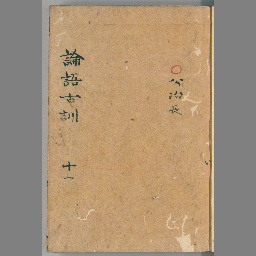 公冶長
論語古訓 十一